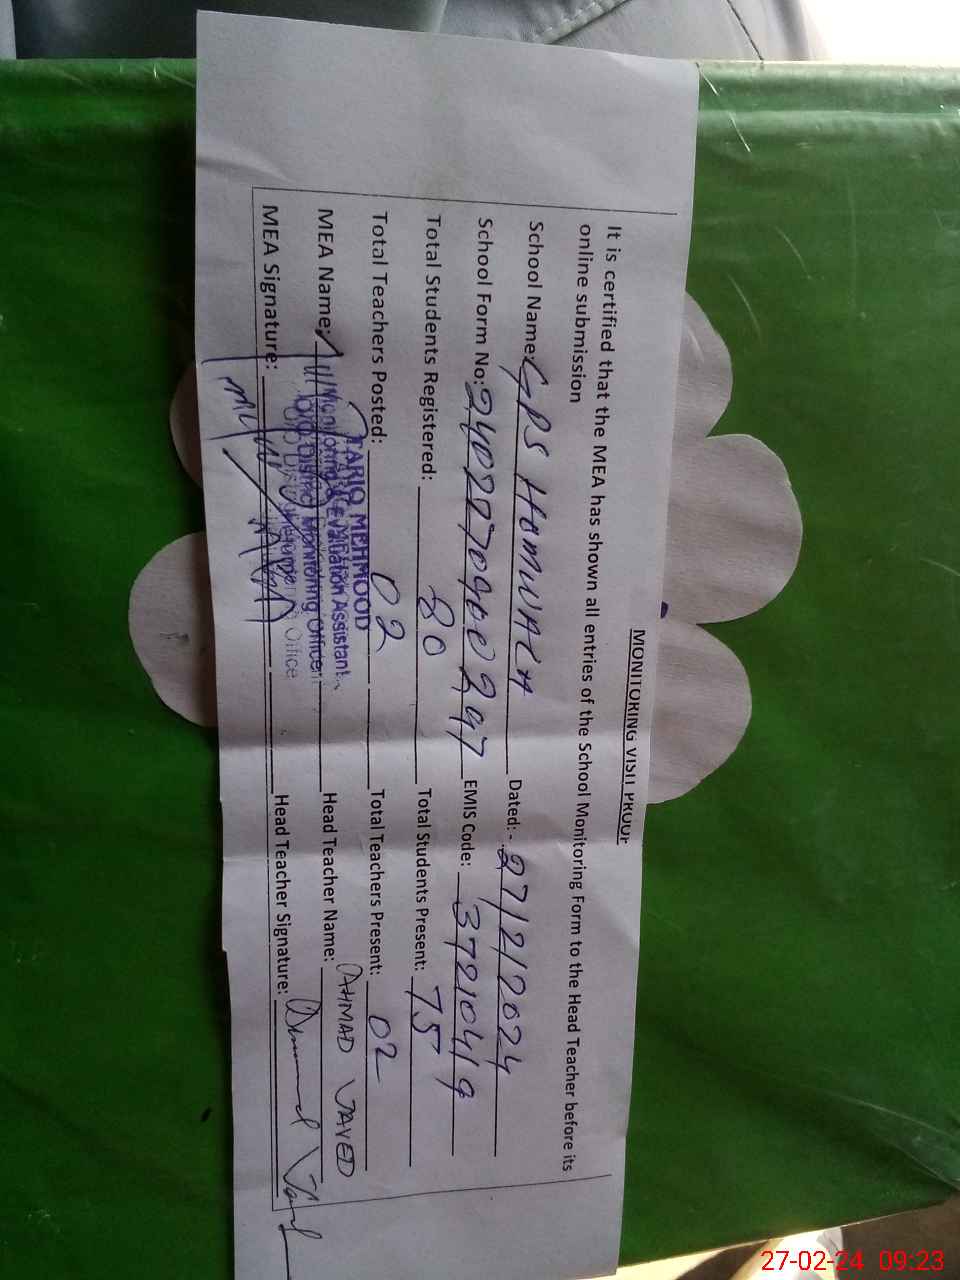 MONITORING VISIT PROOF
It is certified that the MEA has shown all entries of the School Monitoring Form to the Head Teacher before its
online submission
School Name: GPS HOMWALA Dated:- 27/2/2024
School Form No: EMIS Code: 37210419
Total Students Registered: 80 Total Students Present: 75
Total Teachers Posted: 02 Total Teachers Present: 02
MEA Name: Head Teacher Name: AHMAD JAVED
TARIQ MEHMOOD
Monitoring & Evaluation Assistant
District Monitoring Officer
MEA Signature: Head Teacher Signature:
27-02-24 09:23